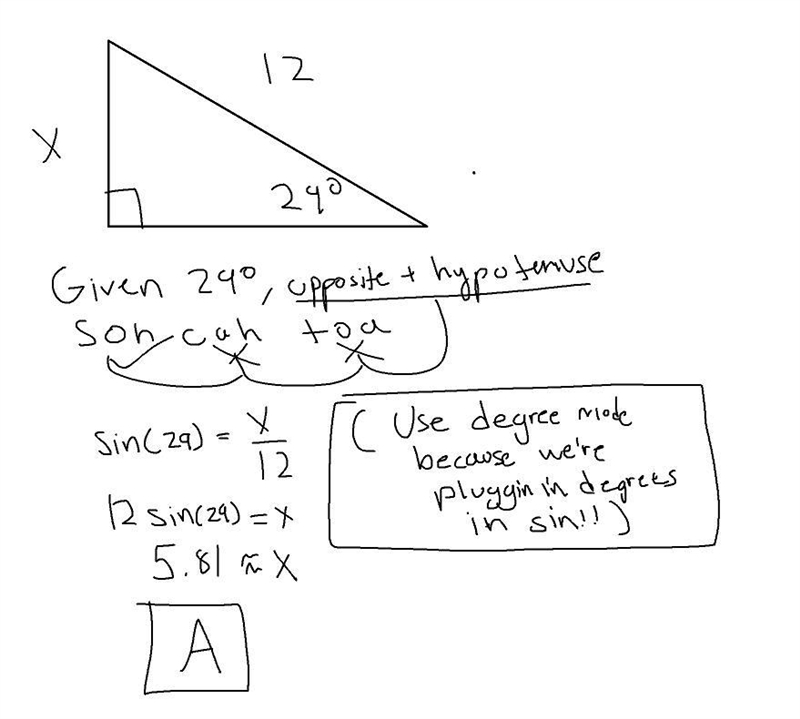 12
X
29°
Given 29°, opposite + hypotenuse
Soh cah toa
sin(29) = x/12
12 sin(29) = x
5.81 ≈ X
A
( Use degree mode
because we're
pluggin in degrees
in sin!! )